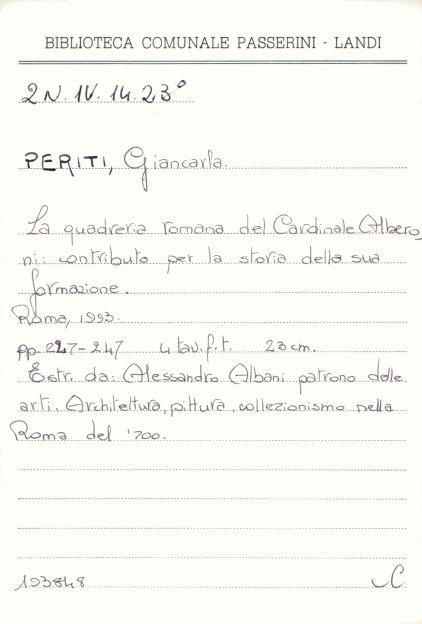 BIBLIOTECA COMUNALE PASSERINI - LANDI
2N.IV.14.23°
PERITI, Giancarla.
La quadreria romana del Cardinale Albero_
ni: contributo per la storia della sua
formazione.
Roma, 1993.
pp. 227-247 4 tav. f.t. 23 cm.
Estr. da: Alessandro Albani patrono delle
arti. Architettura, pittura, collezionismo nella
Roma del '700.
193848 C